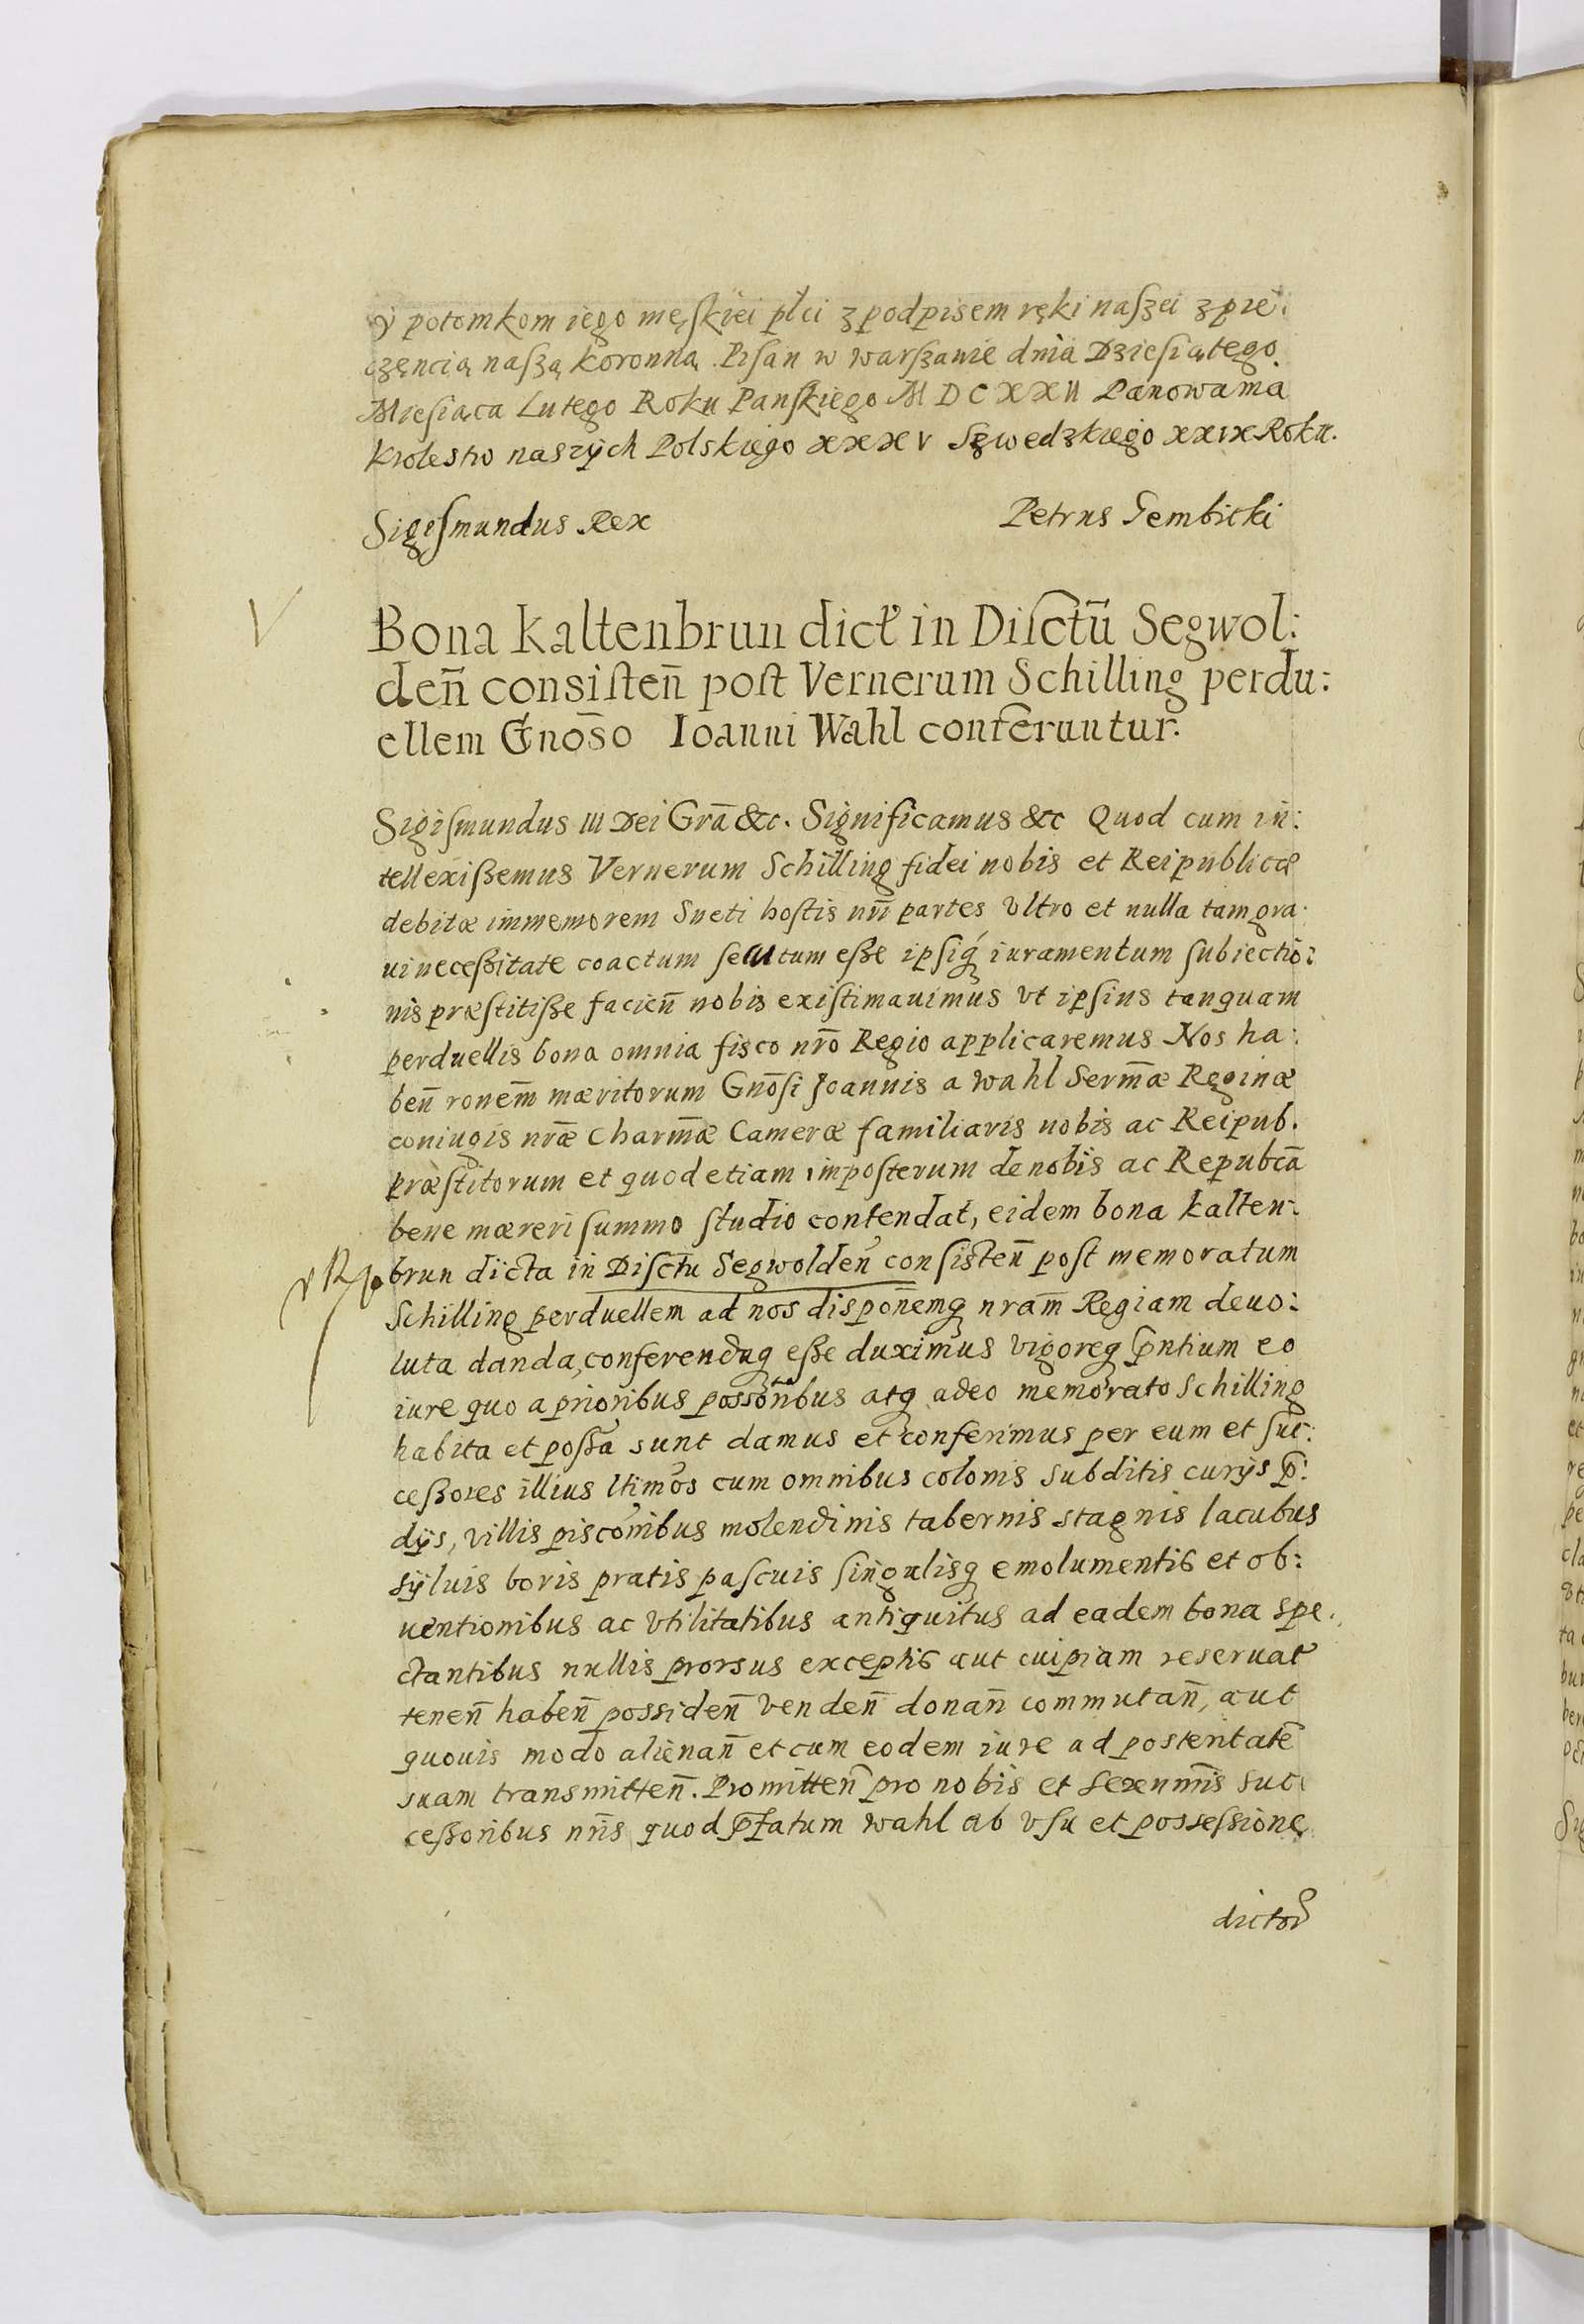 y potomkom iego męskiei płci z podpisem ręki naszei z pie:
częncią naszą koronną. Pisan w warszawie dnia Dziesiątego
Miesiąca Lutego Roku Panskiego M D C XXII Panowania
krolestw naszych Polskiego XXXV Szwedzkiego XXIX Roku.
Sigismundus Rex
Petrus Gembicki
Bona Kaltenbrun dict in Disctũ Segwol:
deñ consisteñ post Vernerum Schilling perdu:
ellem Gnõso Ioanni Wahl conferuntur.
Sigismundus III Dei Grã &c. Significamus &c Quod cum in:
tellexissemus Vernerum Schilling fidei nobis et Reipublicæ
debitæ immemorem Sueti hostis nrĩ partes vltro et nulla tam gra:
ui necessitate coactum secutum esse ipsiq; iuramentum subiectio:
nis præstitisse facieñ nobis existimauimus vt ipsius tanquam
perduellis bona omnia fisco nrõ Regio applicaremus Nos ha:
beñ ronem̃ mæritorum Gnõsi Joannis a Wahl Serm̃æ Reginæ
coniugis nræ̃ Charm̃æ Cameræ familiaris nobis ac Reipub.
præstitorum et quod etiam imposterum de nobis ac Repubcã
bene mæreri summo studio contendat, eidem bona kalten:
brun dicta in Disctu Segwoldeñ consisteñ post memoratum
Schilling perduellem ad nos disponemq; nram̃ Regiam deuo:
luta danda, conferendaq; esse duximus vigoreq; pñtium eo
iure quo a prioribus possoribus atq; adeo memorato Schilling
habita et possa sunt damus et conferimus per eum et suc:
cessores illius ltimos cum omnibus colonis subditis curijs p:
dijs, villis pisconibus molendinis tabernis stagnis lacubus
syluis boris pratis pascuis singulisq; emolumentis et ob:
uentionibus ac vtilitatibus antiquitus ad eadem bona spe:
ctantibus nullis prorsus exceptis aut cuipiam reseruat
teneñ habeñ possideñ vendeñ donañ commutañ, aut
quouis modo alienañ et cum eodem iure ad posteritatẽ
suam transmitteñ. Promitteñ pro nobis et Serenmĩs suc:
cessoribus nrĩs quod pfatum Wahl ab vsu et possessione
dictor